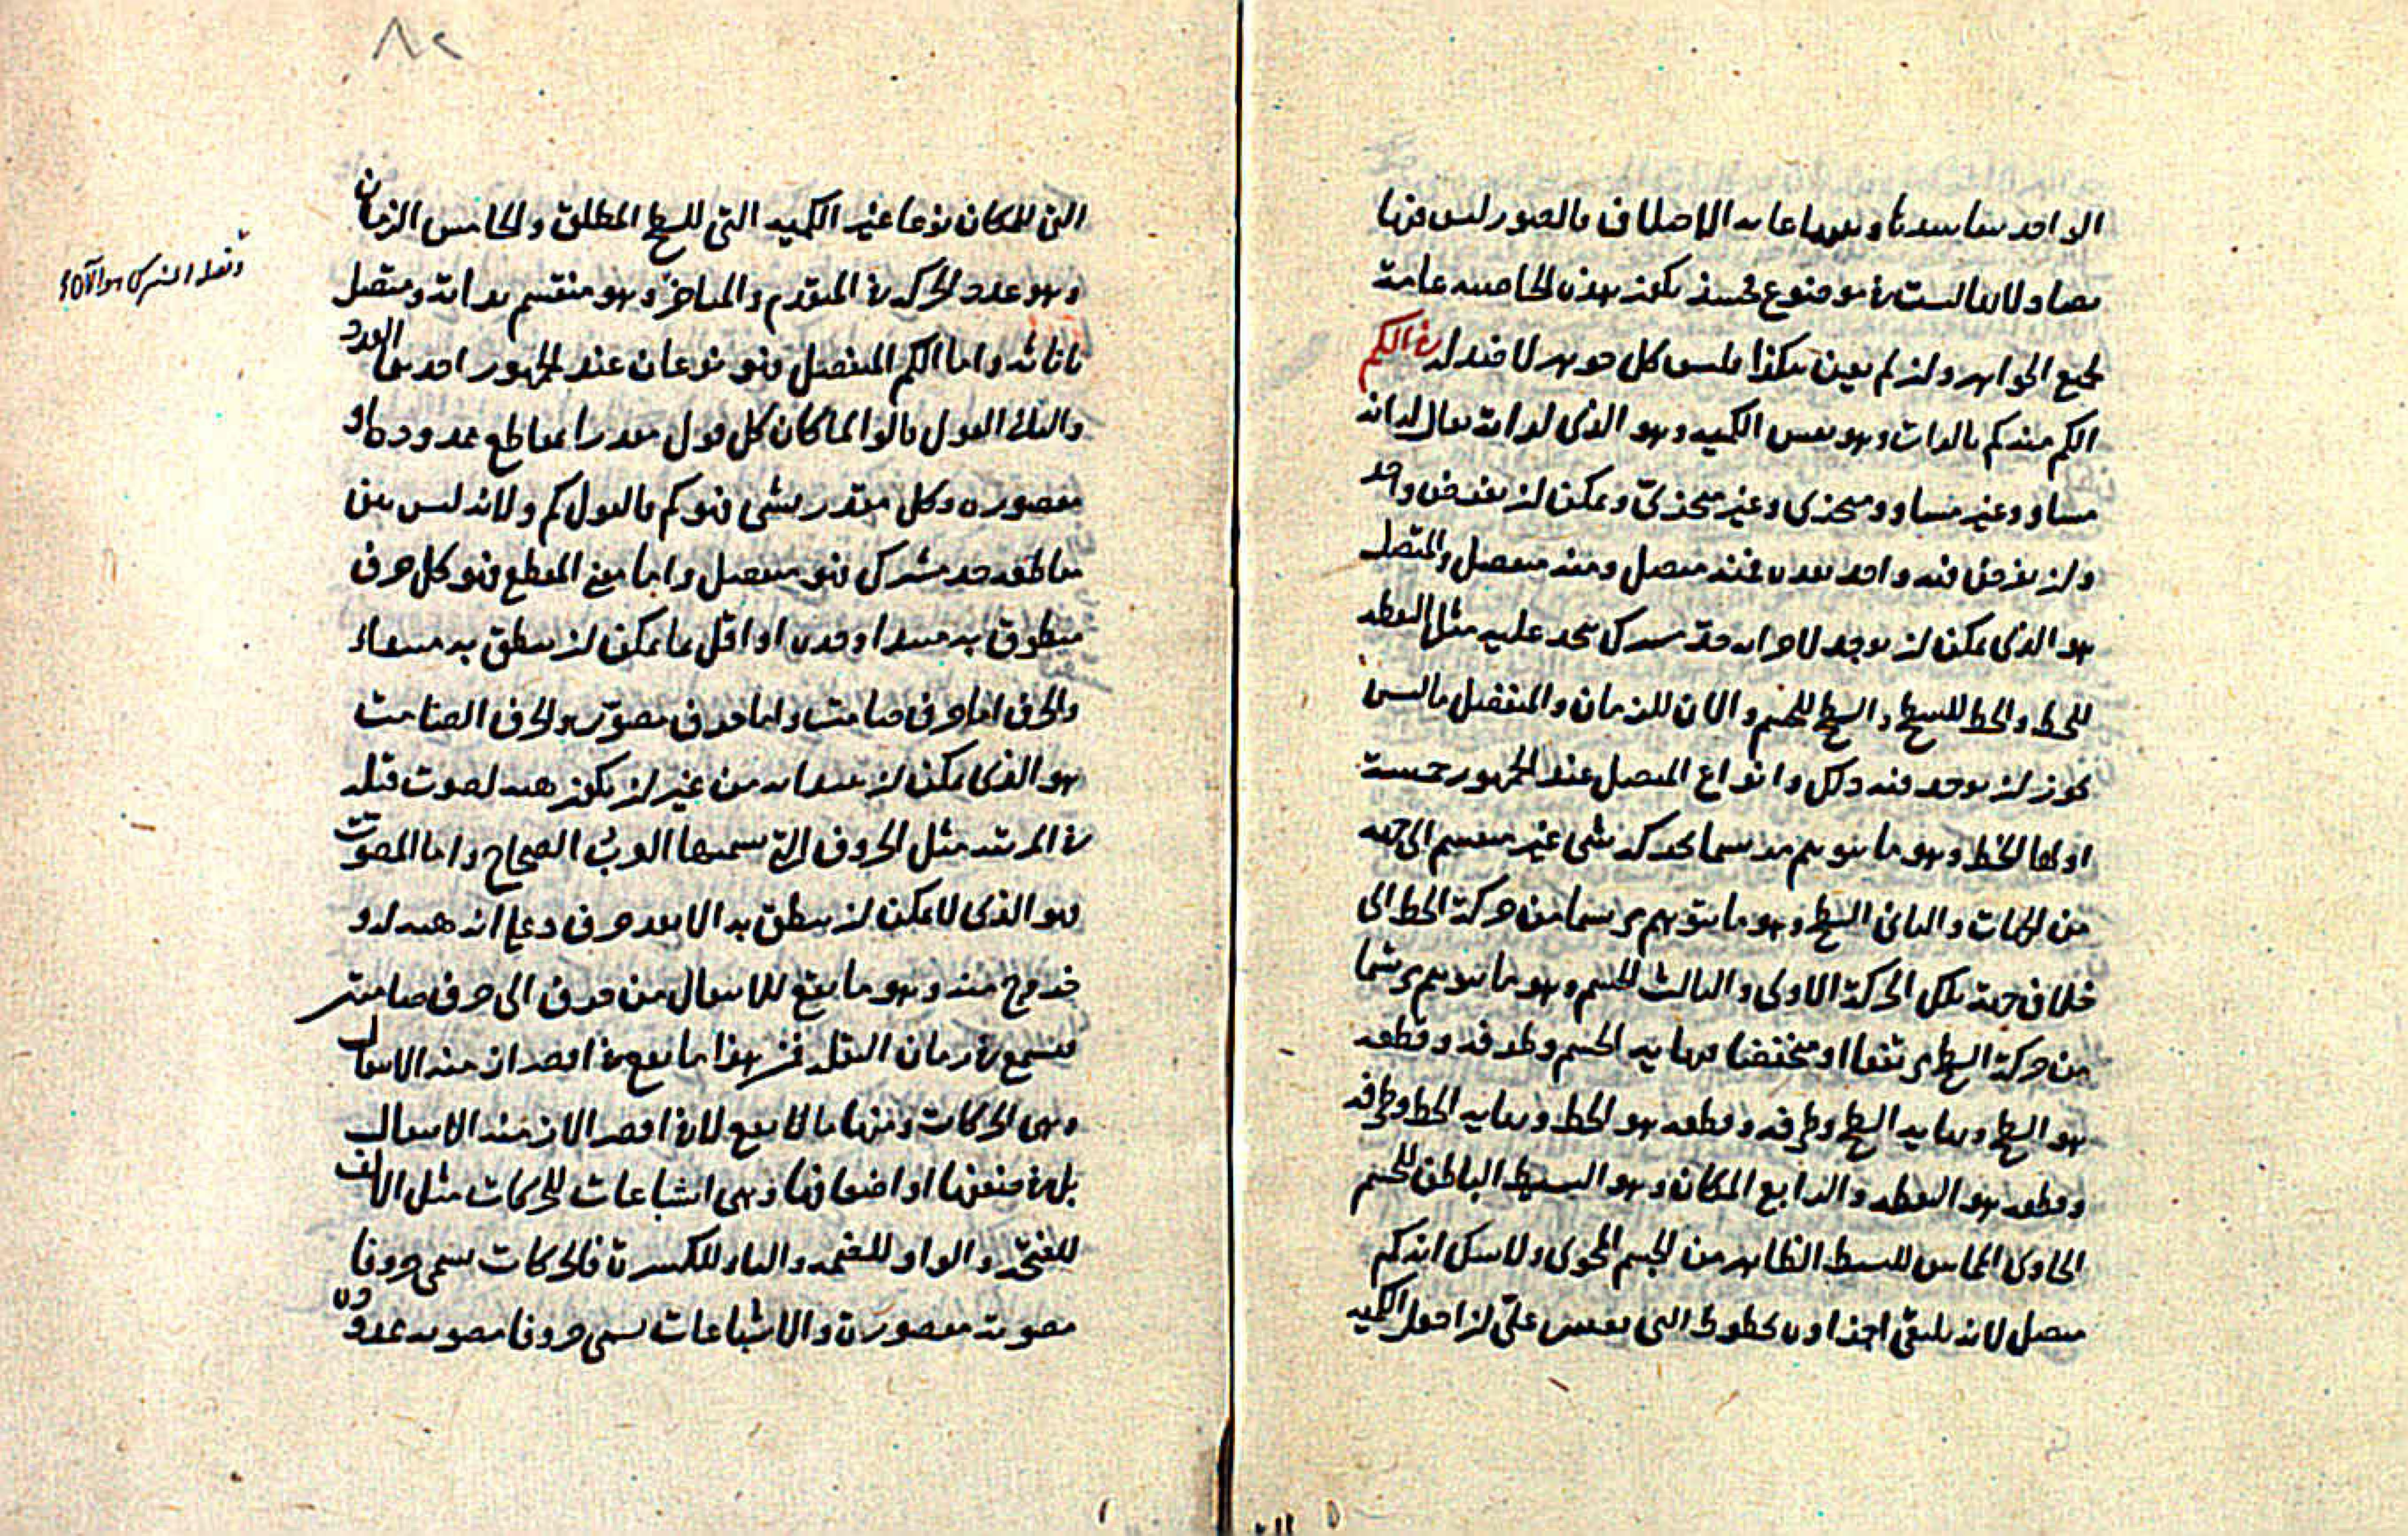 الواحد بينهما عامة الاختلاف بالصور ليس فيها
تضاد لانها ليست في موضوع فحينئذ يكون هذه الخاصية عامة
لجميع الجواهر وان لم يعين هكذا فليس كل جوهر لا ضد له في الكم
الكم منه كم بالذات وهو نفس الكمية وهو الذي لذاته يقال له انه
مساو وغير مساو ومتجزى وغير متجزئ ويمكن ان يفرض واحد
وان يفرض فيه واحد يعده فمنه متصل ومنه منفصل والمتصل
هو الذي يمكن ان يوجد لاجزائه حد مشترك يتحد عليه مثل النقطة
للخط والخط للسطح والسطح للجسم والان للزمان والمنفصل ما ليس
يجوز ان يوجد فيه ذلك وانواع المتصل عند الجمهور خمسة
اولها الخط وهو ما يتوهم مرتسما بحركة شى غير منقسم الى جهة
من الجهات والثاني السطح وهو ما يتوهم مرتسما من حركة الخط الى
خلاف جهة تلك الحركة الاولى والثالث الجسم وهو ما يتوهم مرتسما
من حركة السطح مرتفعا او منخفضا ونهاية الجسم وطرفه وقطعه
هو السطح ونهاية السطح وطرفه وقطعه هو الخط ونهاية الخط وطرفه
وقطعه هو النقطة والرابع المكان وهو البسيط الباطن للجسم
الحاوى المماس للبسيط الظاهر من الجسم المحوى ولا شك انه كم
متصل لانه يلتقى اجزاوه بخطوط التى على ان اجعل الكمية
التى للمكان نوعا غير الكمية التى للسطح المطلق والخامس الزمان
وهو عدد الحركة في المتقدم والمتاخر وهو منقسم بذاته ومتصل
باناته واما الكم المنفصل فهو نوعان عند الجمهور احدهما العدد
والثاني القول قالوا لما كان كل قول مقدرا بمقاطع ممدودة او
مقصورة وكل مقدر بشى فهو كم فالقول كم ولانه ليس بين
مقاطعه حد مشترك فهو منفصل واما معنى المقطع فهو كل حرف
منطوق به مبتدا وحده او اقل ما يمكن ان ينطق به
والحرف اما حرف صامت واما حرف مصوّت والحرف الصامت
هو الذي يمكن ان يبتدا به من غير ان يكون هيئة لصوت قبله
في المرتبة مثل الحروف التى تسميها العرب الصحاح واما المصوّت
فهو الذي لا يمكن ان ينطق به الا بعد حرف وعلى انه هيئة له و
خروج منه وهو ما يقع للانتقال من حرف الى حرف صامتين
فيسمع في زمان النقلة فمن هذا ما يقع في اقصر ازمنة الانتقال
وهى الحركات ومنها ما لا يقع لا في اقصر الازمنة الانتقال
بل في ضعفها او اضعافها وهى اشباعات للحركات مثل الالف
للفتحة والواو للضمة والياء للكسرة فالحركات تسمى حروفا
مصوتة مقصورة والاشباعات تسمى حروفا مصوتة ممدودة